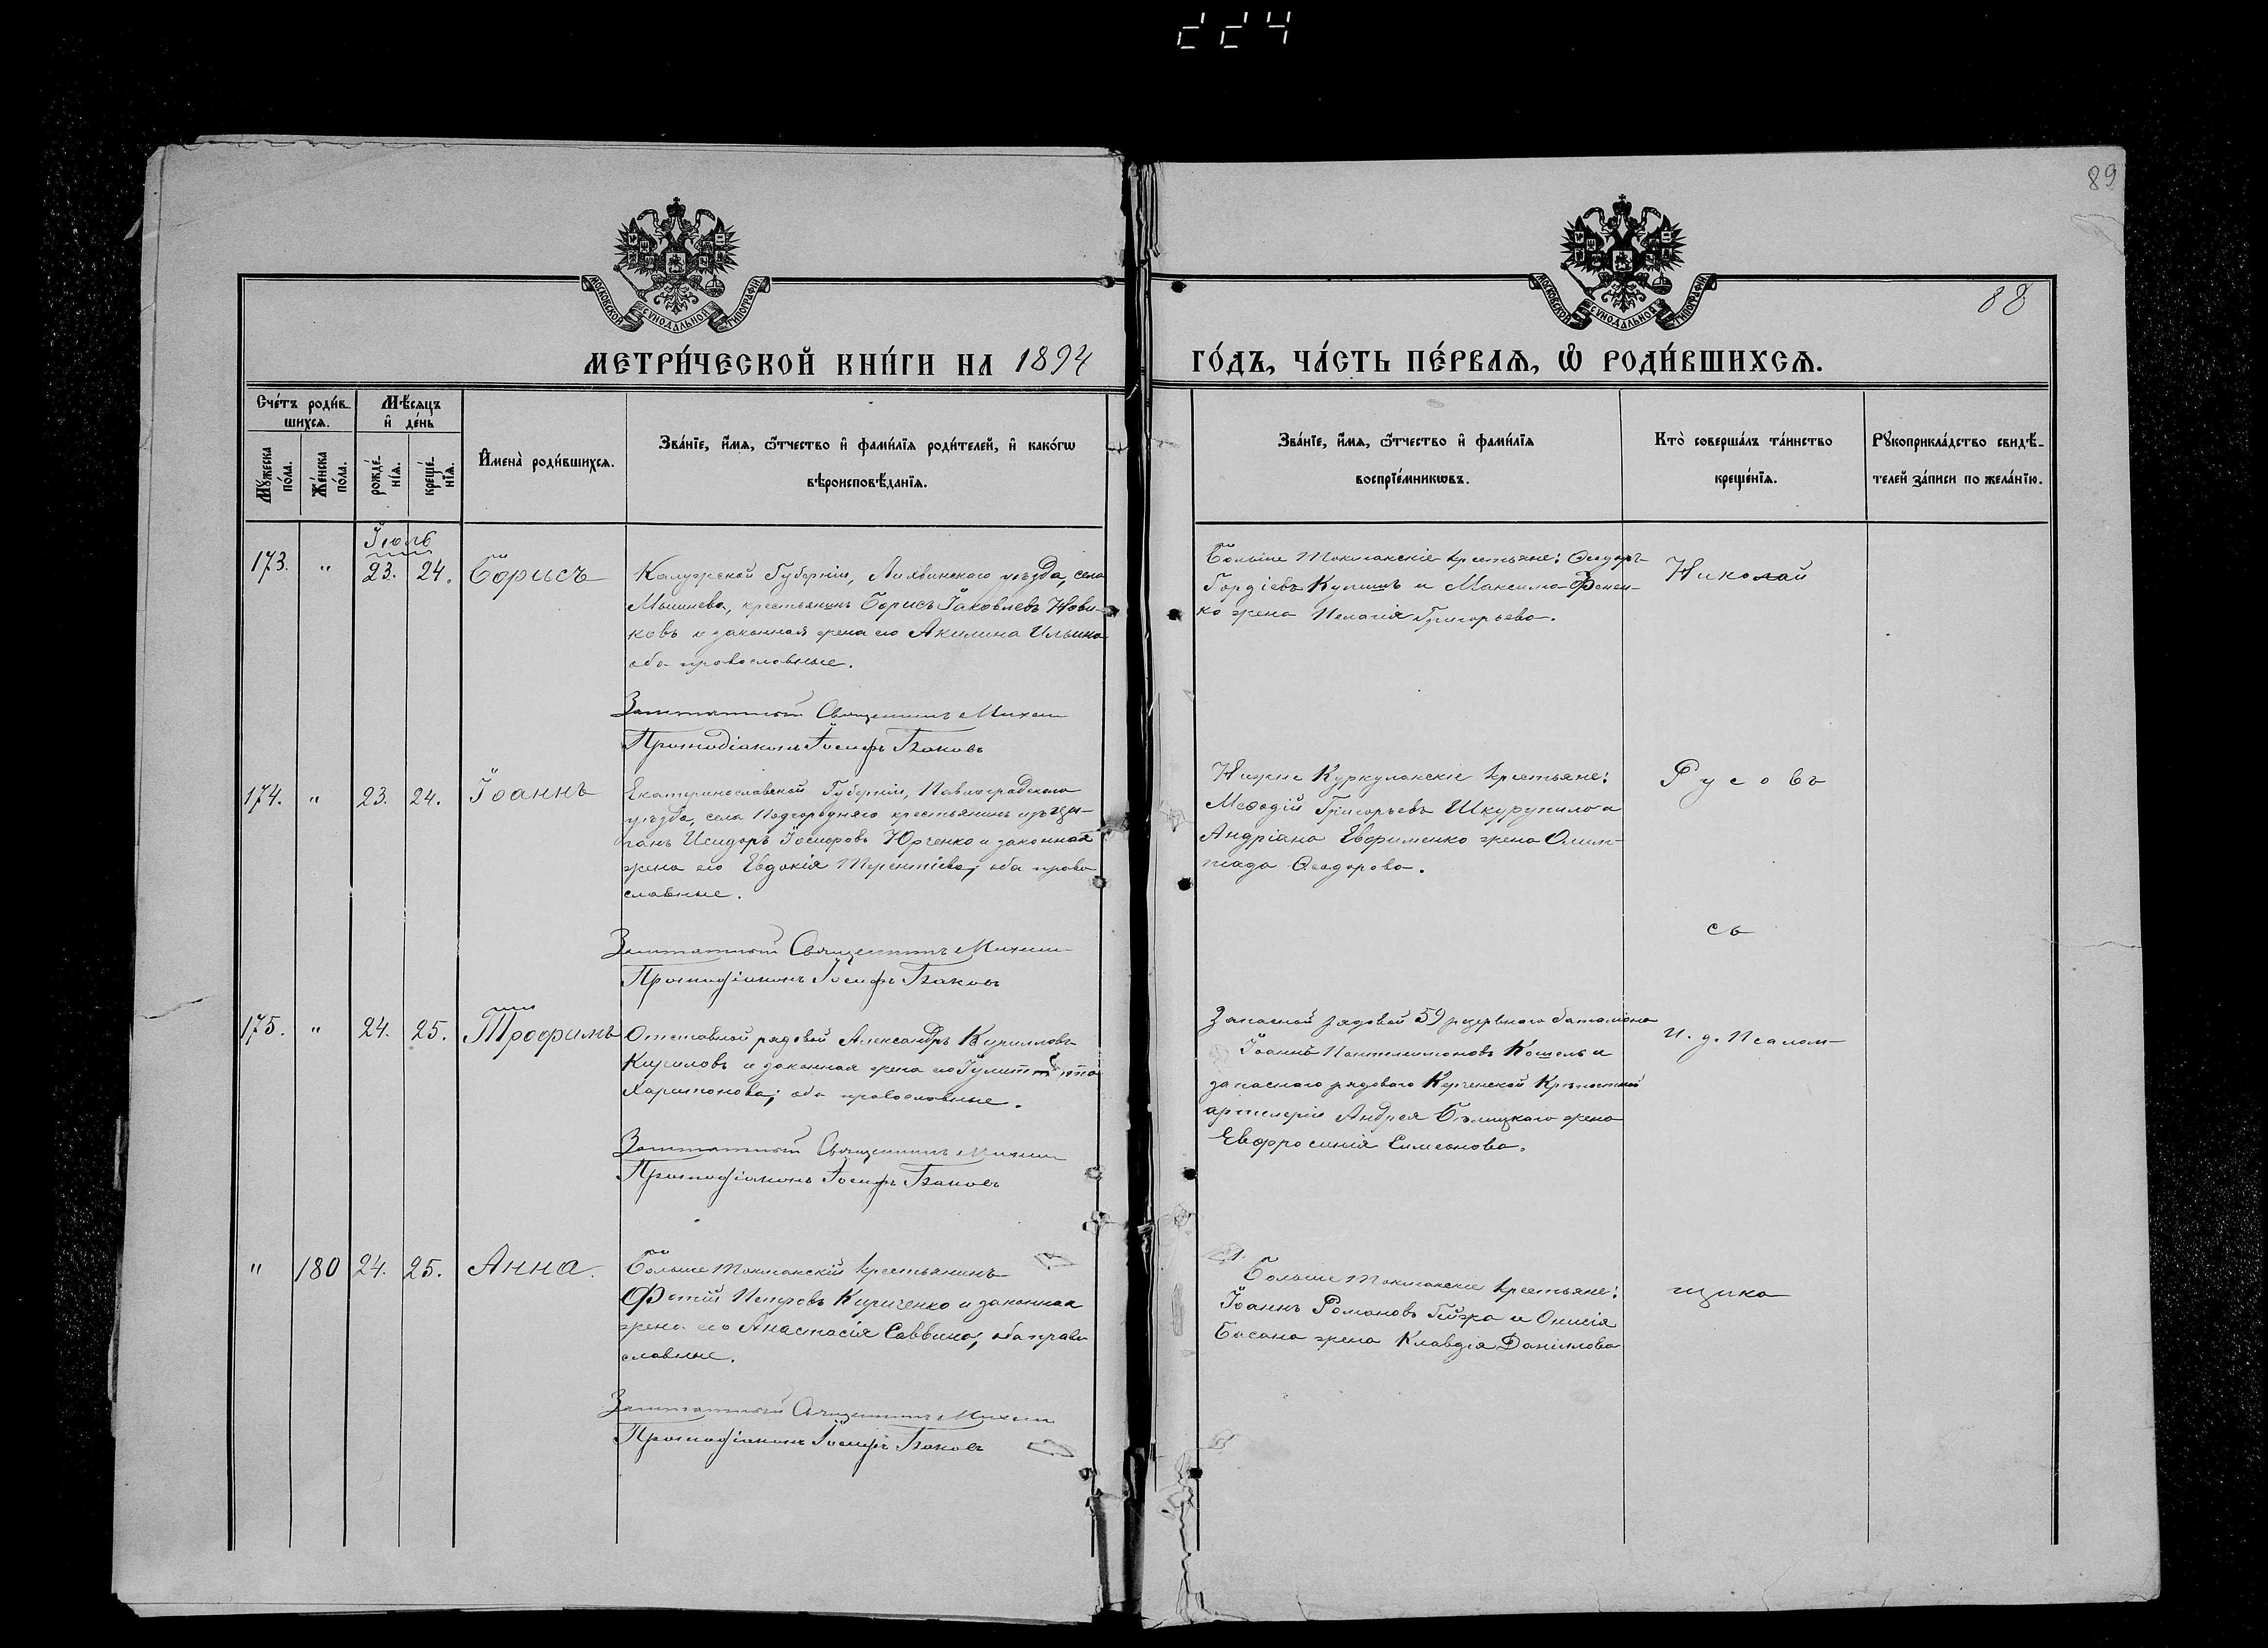 224
89
88
МОСКОВСКОЙ СѴНОДАЛЬНОЙ ТИПОГРАФІИ
МОСКОВСКОЙ СѴНОДАЛЬНОЙ ТИПОГРАФІИ
МЕТРИ́ЧЕСКОЙ КНИ́ГИ НА 1894
ГО́ДЪ, ЧА́СТЬ ПЕ́РВАѦ, Ѽ РОДИ́ВШИХСѦ.
Сче́тъ роди́в-
шихсѧ.
Мꙋ́жеска по́ла.
Же́нска по́ла.
Мѣ́сѧцъ
и҆ де́нь
рожде́-нїѧ.
креще́-нїѧ.
И҆мена̀ роди́вшихсѧ.
Зва́нїе, и҆́мѧ, ѻ҆́тчество и҆ фами́лїѧ роди́телей, и҆ како́гѡ
вѣроисповѣ́данїѧ.
Зва́нїе, и҆́мѧ, ѻ҆́тчество и҆ фами́лїѧ
воспрїе́мникѡвъ.
Кто̀ соверша́лъ та́инство
креще́нїѧ.
Рꙋкоприкла́дство свидѣ́-
телей за́писи по жела́нїю.
Іюль
173. " 23. 24. Борисъ
Калужской Губерніи, Лихвинскаго уѣзда, села
Мишнева, крестьянинъ Борисъ Іаковлевъ Нови-
ковъ и законная жена его Акилина Ильина
оба православные.
Заштатный Священникъ Михаил
Протодіаконъ Іосифъ Баковъ
Больше Токмакскіе крестьяне: Ѳеодоръ
Гордіевъ Кулишъ и Максима Фомен-
ко жена Пелагія Григорьева.
Николай
174. " 23. 24. Іоаннъ
Екатеринославской Губерніи, Павлоградскаго
уѣзда, села Подгородняго крестьянинъ изъ цы-
ганъ Исидоръ Юрченко и законная
жена его Евдокія Терентіева; оба право
славные.
Заштатный Священникъ Михаил
Протодіаконъ Іосифъ Баковъ
Нижне Куркулакскіе крестьяне:
Меѳодій Григорьевъ Шкурупило и
Андріана Евфименко жена Олим-
піада Ѳеодорова.
Русовъ
съ
175. " 24. 25. Трофимъ
Отставной рядовой Александръ Кирилловъ
Кириловъ и законная жена его
Харитонова; оба православные.
Заштатный Священникъ Михаил
Протодіаконъ Іосифъ Баковъ
Запасной рядовой 59 резервнаго баталіона
Іоаннъ Пантелимоновъ Кошель и
запаснаго рядоваго Керченской Крѣпостной
артилеріи Андрея Бѣлицкаго жена
Евфросинія Симеонова.
И. д. Псалом-
" 180 24. 25. Анна.
Больше Токмакскій крестьянинъ
Фотій Петровъ Кириченко и законная
жена его Анастасія Саввина; оба право
славные.
Заштатный Священникъ Михаил
Протодіаконъ Іосифъ Баковъ
Больше Токмакскіе крестьяне:
Іоаннъ Романовъ и Онисія
Басана жена Клавдія Данилова
щика